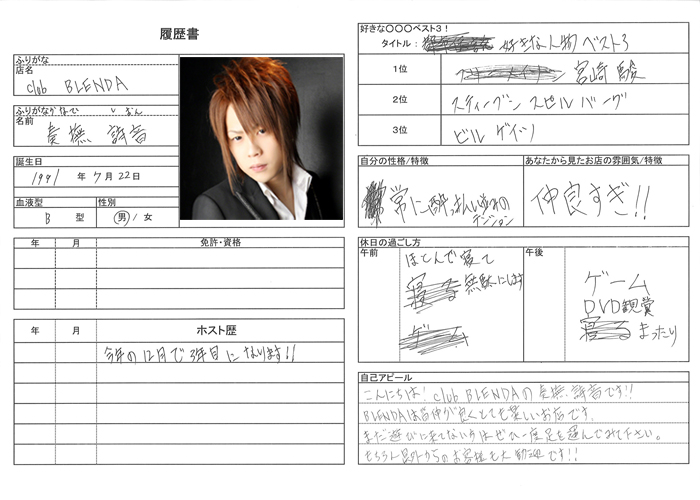 履歴書
ふりがな
店名
club BLENDA
ふりがな
名前
奏撫 詩音
誕生日
1991 年 7月 22日
血液型
性別
B 型
男 / 女
年 月 免許・資格
年 月 ホスト歴
今年の12月で3年目になります!!
好きな〇〇〇ベスト3!
タイトル: 好きな人物 ベスト3
1位
宮崎 駿
2位
スティーブン スピルバーグ
3位
ビル ゲイツ
自分の性格/特徴
あなたから見たお店の雰囲気/特徴
常に酔っ払い
テンション
仲良すぎ!!
休日の過ごし方
午前
午後
ほとんで寝て
無駄にします
ゲーム
DVD観賞
まったり
自己アピール
こんにちは! club BLENDAの奏撫 詩音です!!
BLENDAは皆仲が良くとても楽しいお店です。
まだ遊びに来てない方はぜひ一度足を運んでみて下さい。
もちろん県外からのお客様も大歓迎です!!